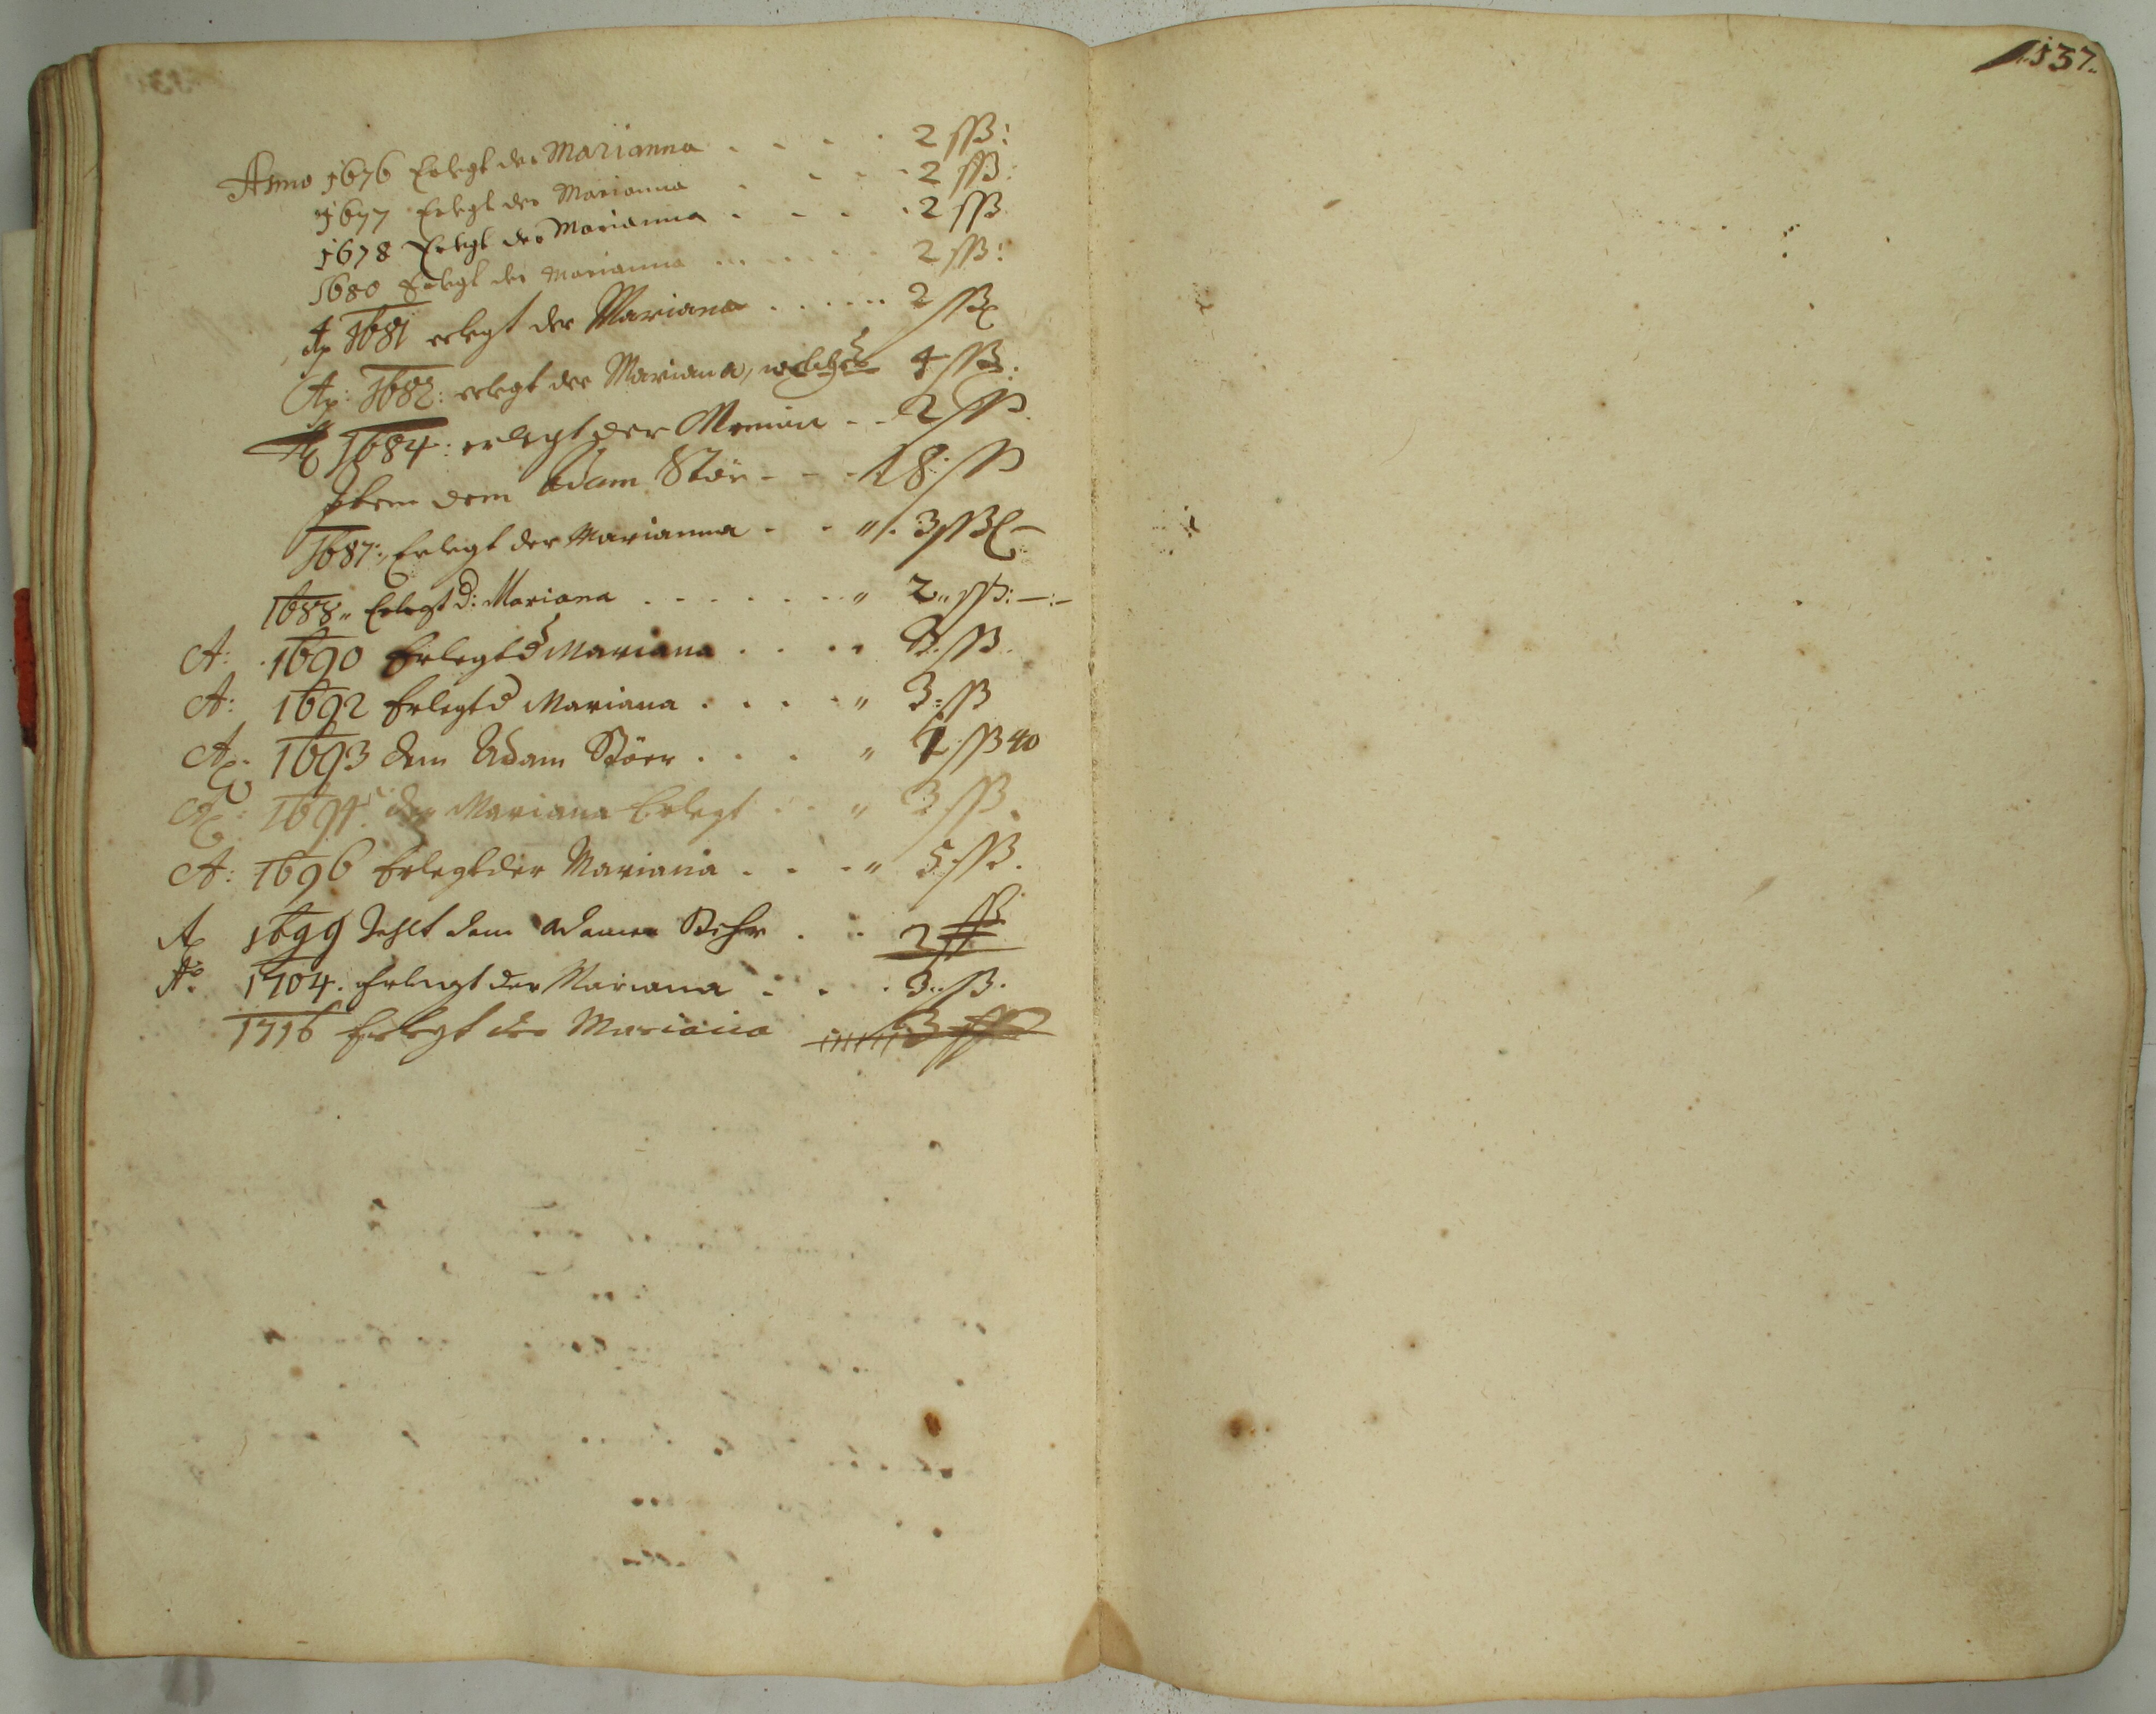 537.
Anno 1676 Erlegt der Marianna . . . . 2 ſſβ:
1677 Erlegt der Marianna . . . . 2 ſſβ:
1678 Erlegt der Marianna . . . . 2 ſſβ
1680 Erlegt der Marianna . . . . . . 2 ſſβ:
Aō 1681 erlegt der Mariana . . . . . . 2 ſſβ
Aō: 1682: erlegt der Mariana, 4 ſſβ:
Aō 1684: erlegt der - - 2 ſſβ.
Item dem Adam Stör - - - 18 ſſβ
1687: Erlegt der Marianna - - „ . 3 ſſβ —
1688„ Erlegt d: Mariana . . . . . . . „ 2„ ſſβ: —:—
A: 1690 Erlegt d Mariana . . . . 3. ſſβ.
A: 1692 Erlegt d Mariana . . . . „ 3: ſſβ
Aō: 1693 dem Adam Störr . . . „ ſſβ 40
Aō: 1694: der Mariana Erlegt . . „ 3 ſſβ.
A: 1696 Erlegt der Mariana . . . „ 5: ſſβ.
Aō 1699 Zehlt dem Adamen Stehr . . 2 ſſβ
Aō: 1704. Erlegt der Mariana . . . 3„ ſſβ.
1716 Erlegt der Mariana 3 ſſβ